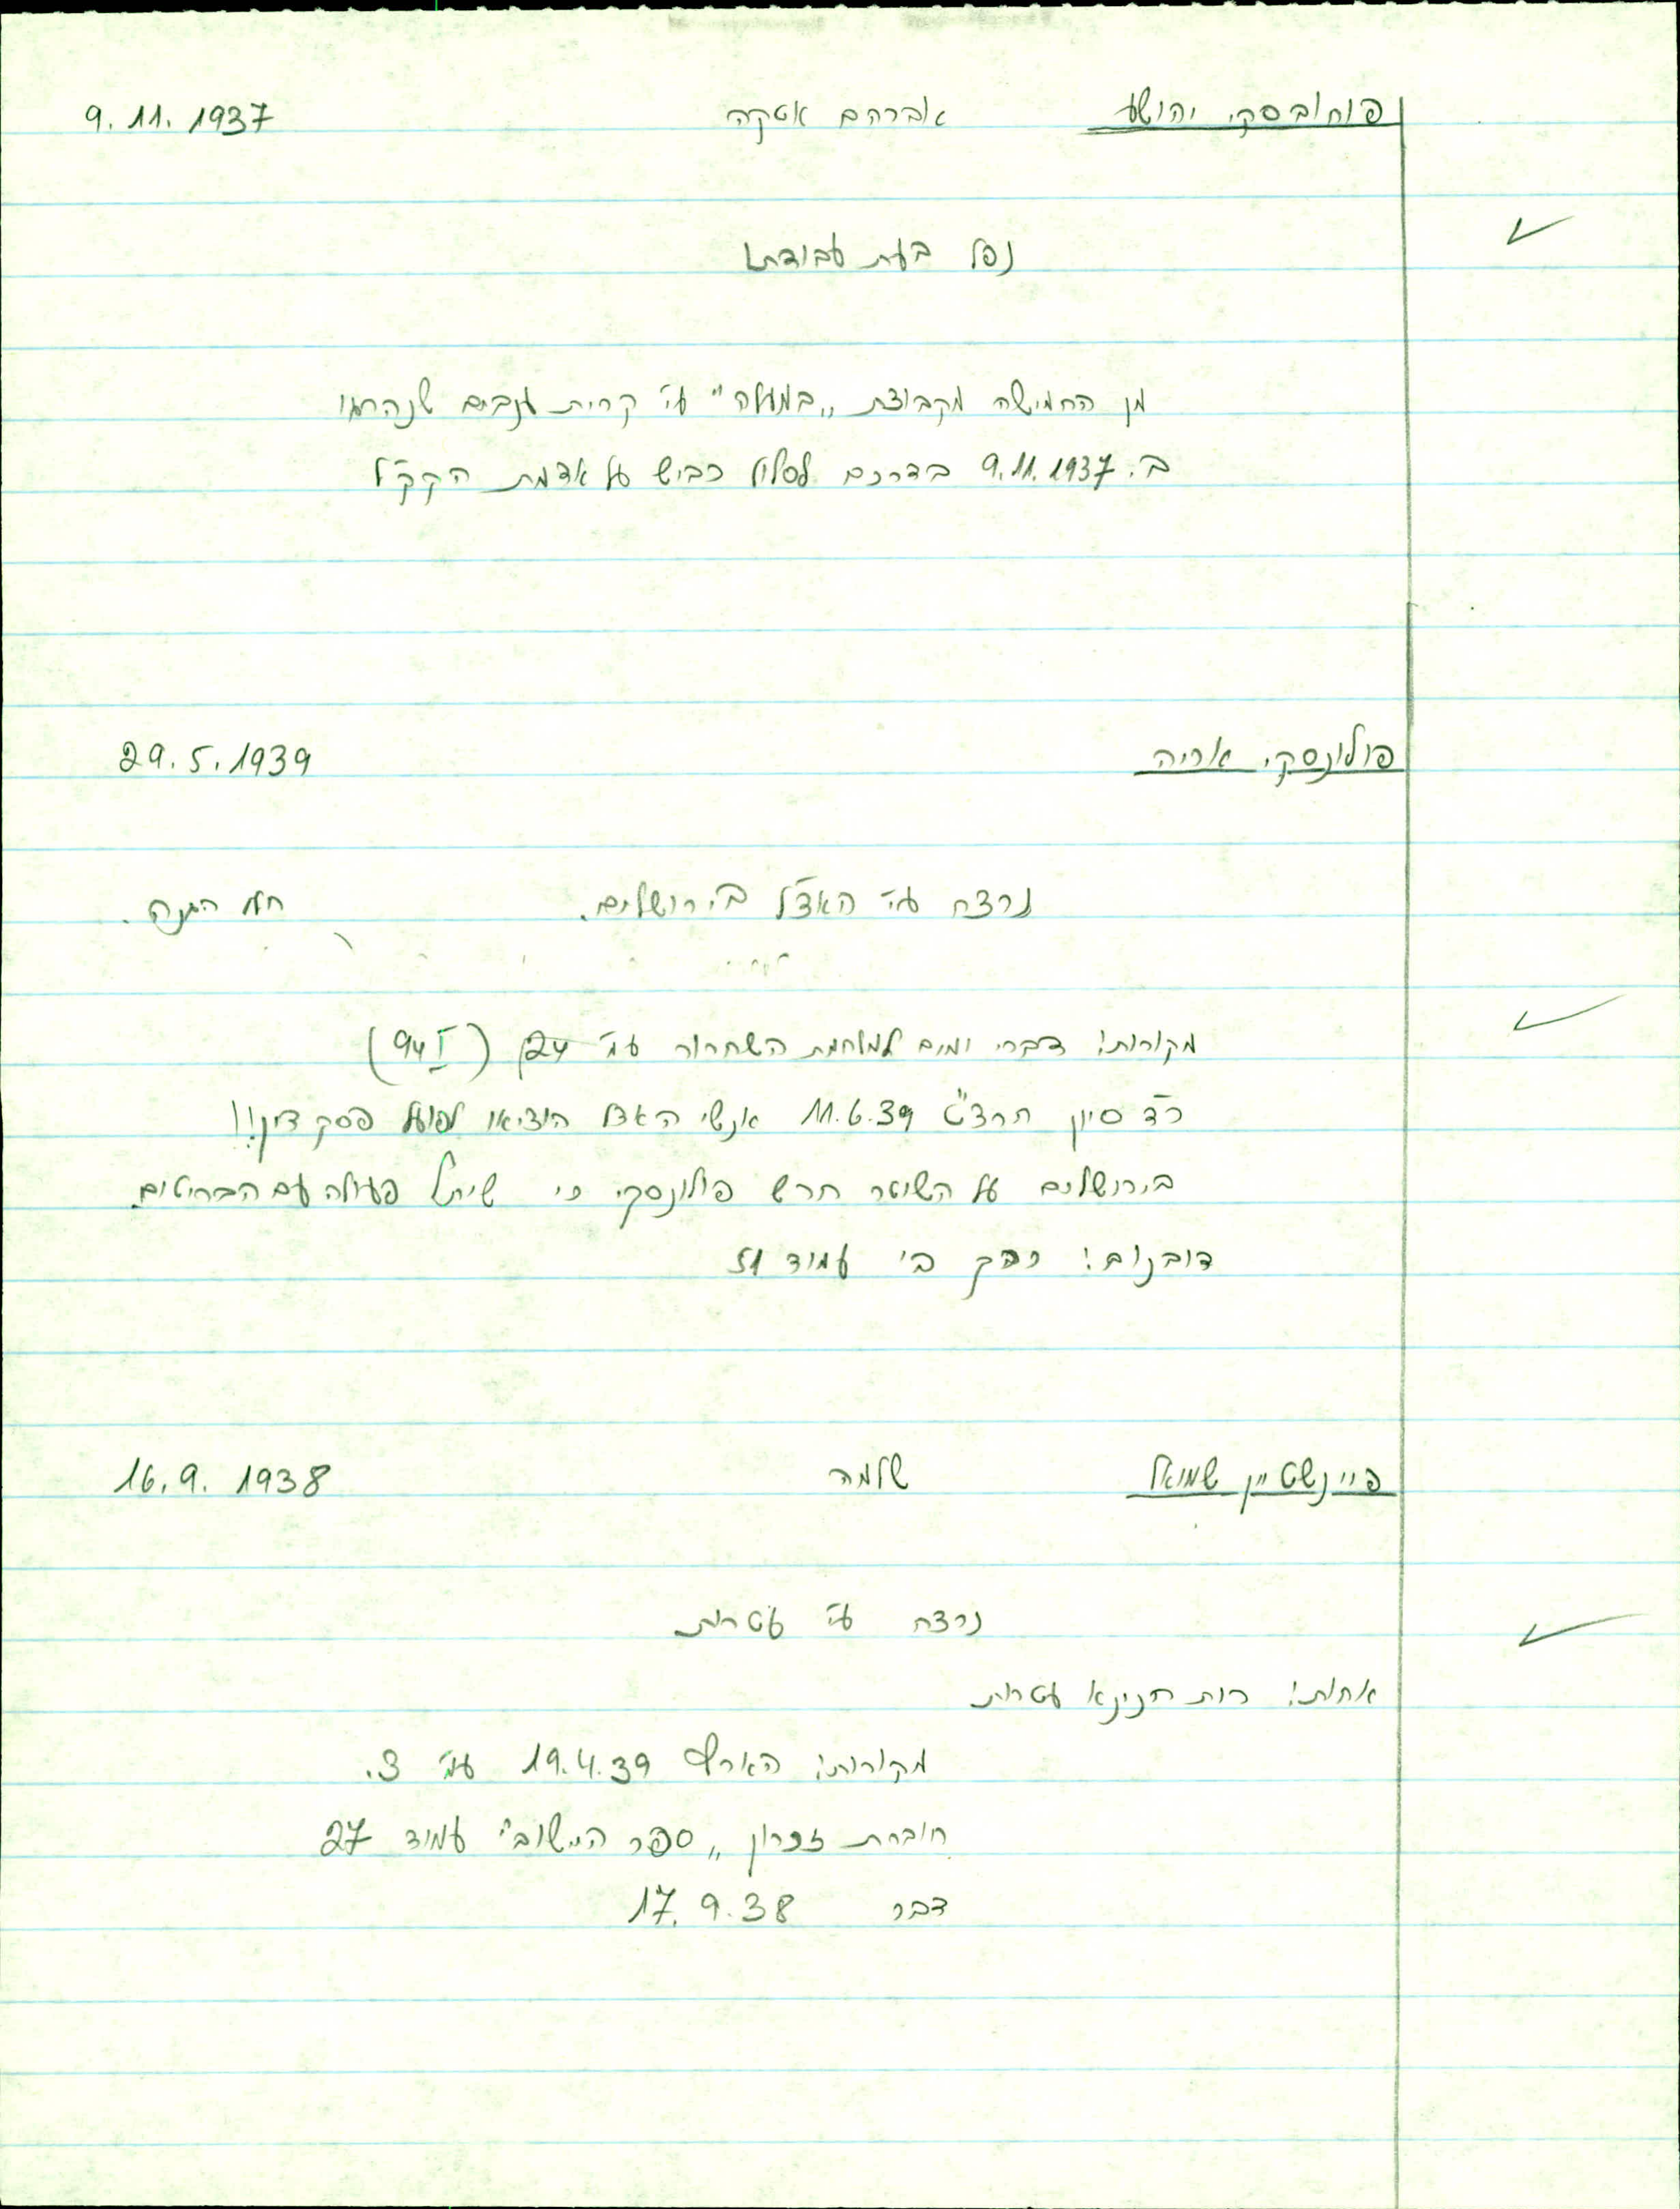 פוחובסקי יהושע אברהם אטקה 9.11.1937
נפל בעת עבודתו
מן החמישה מקבוצת „במעלה" ע"י קרית ענבים שנהרגו
ב. 9.11.1937 בדרכם לסלול כביש על אדמת הקק"ל
פולונסקי אריה 29.5.1939
נרצח ע"י האצ"ל בירושלים. הגנה.
מקורות: דברי ימים למלחמת השחרור עמ' 24 (94 I)
כ"ד סיון תרצ"ט 11.6.39 אנשי האצל הוציאו לפועל פסק דין!!
בירושלים על השוטר חרש פולונסקי כי שיתף פעולה עם הבריטים.
דובנוב: כרך ב' עמוד 51
פיינשטיין שמואל שלמה 16.9.1938
נרצח ע"י עטרות
אחות: רות חנינא עטרות
מקורות: הארץ 19.4.39 עמ' 3.
חוברת זכרון „ספר הישוב" עמוד 27
דבר 17.9.38